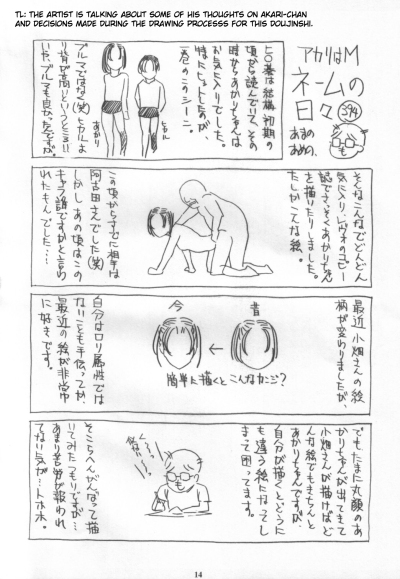 TL: THE ARTIST IS TALKING ABOUT SOME OF HIS THOUGHTS ON AKARI-CHAN
AND DECISIONS MADE DURING THE DRAWING PROCESSS FOR THIS DOUJINSHI.
アカリはM
ネームの
日々
あまの
あめの、
ヒカ碁は結構、初期の
頃から読んでいて、その
時からあかりちゃんは
お気に入りでした。
特にヒットしたのが、
一巻のこのシーン。
ヒカル
あかり
ブルマではなく(笑)ヒカルより
背が高いというところ!!
いや、ブルマも良かったですが。
そんなこんなでどんどん
気に入り、レヴォのコピー
誌でさっそくあかり本
を描いたりしました。
たしかこんな絵。
この頃からすでに相手は
阿古田さんでした(笑)
しかし、あの頃はこの
キャラ誰ですかと言わ
れたもんでした…
最近小畑さんの絵
柄が変わりましたが、
昔
←
今
簡単に描くとこんなかんじ?
自分はロリ属性では
ないことも手伝ってか、
最近の絵が非常
に好きです。
でもたまに丸顔のあ
かりちゃんが出てきて
小畑さんが描けばど
んな絵でもきちんと
あかりちゃんですが、
自分が描くとどうに
も違う絵になってし
まって困ってます。
そこらへんがんばって描
いてみたつもりですが…
あまり苦労が報われ
てない気が…トホホ。
14